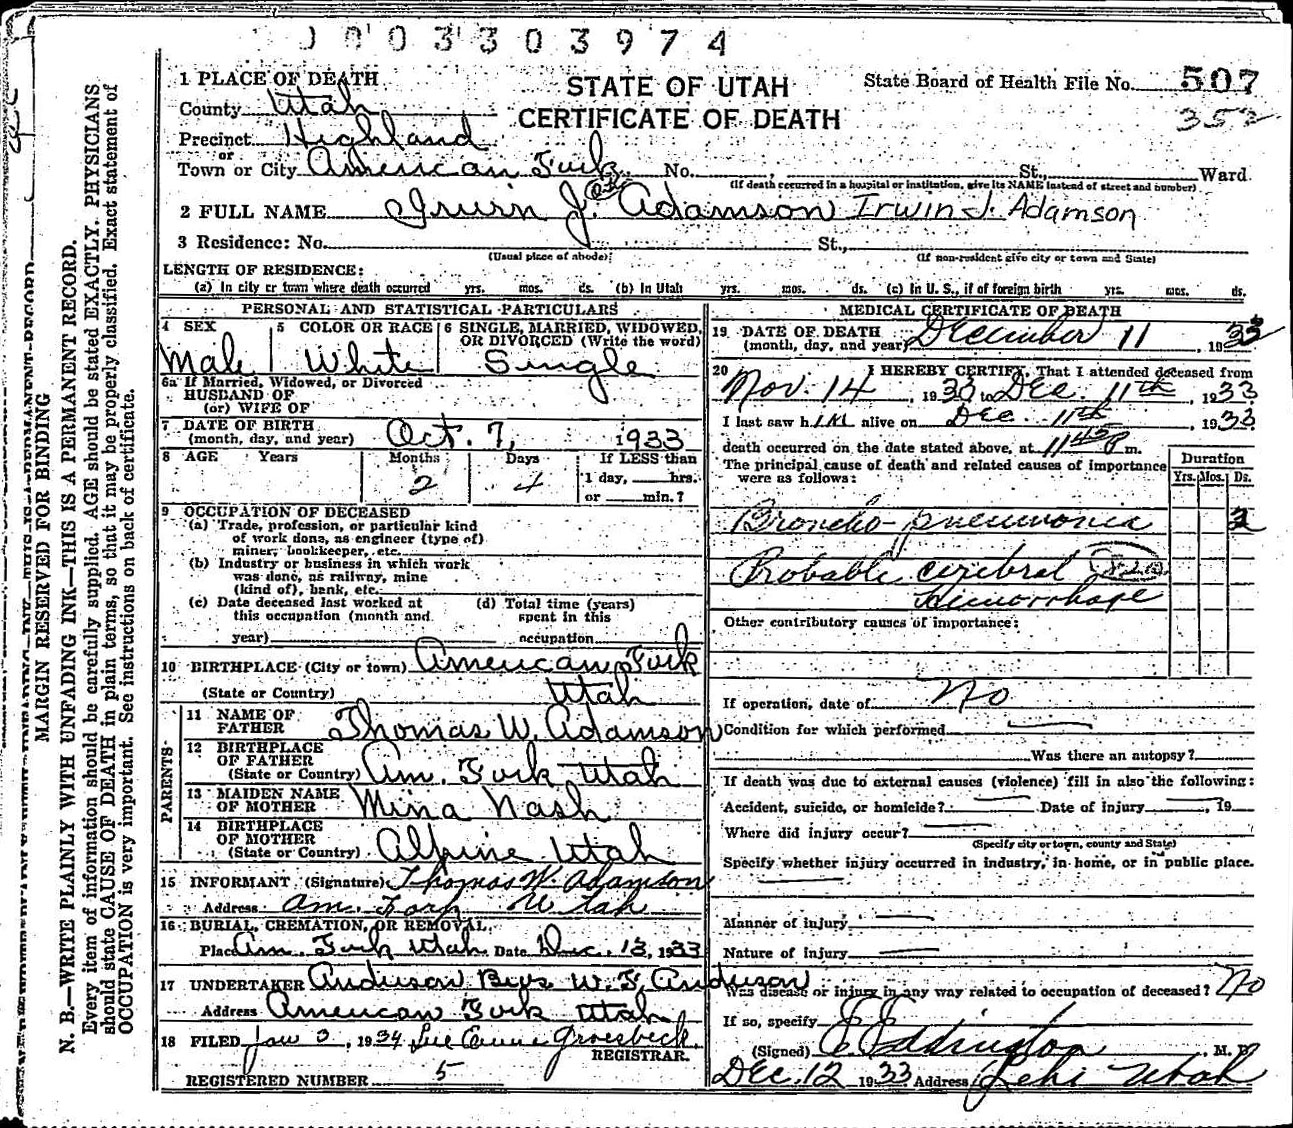 0003303974
1 PLACE OF DEATH
STATE OF UTAH
CERTIFICATE OF DEATH
State Board of Health File No. 507
352
County Utah
Precinct Highland
or
Town or City American Fork No. St., Ward
(If death occurred in a hospital or institution, give its NAME instead of street and number)
2 FULL NAME Irwin J. Adamson Irwin J. Adamson
3 Residence: No. St.,
(Usual place of abode) (If non-resident give city or town and State)
LENGTH OF RESIDENCE:
(a) In city or town where death occurred yrs. mos. ds. (b) In Utah yrs. mos. ds. (c) In U. S., if of foreign birth yrs. mos. ds.
PERSONAL AND STATISTICAL PARTICULARS
4 SEX 5 COLOR OR RACE 6 SINGLE, MARRIED, WIDOWED, OR DIVORCED (Write the word)
Male White Single
6a If Married, Widowed, or Divorced
HUSBAND OF
(or) WIFE OF
7 DATE OF BIRTH
(month, day, and year) Oct. 7, 1933
8 AGE Years Months Days If LESS than
2 4 1 day, hrs.
or min.?
9 OCCUPATION OF DECEASED
(a) Trade, profession, or particular kind
of work done, as engineer (type of)
miner, bookkeeper, etc.
(b) Industry or business in which work
was done, as railway, mine
(kind of), bank, etc.
(c) Date deceased last worked at (d) Total time (years)
this occupation (month and spent in this
year) occupation
10 BIRTHPLACE (City or town) American Fork
(State or Country) Utah
PARENTS
11 NAME OF
FATHER Thomas W. Adamson
12 BIRTHPLACE
OF FATHER
(State or Country) Am. Fork Utah
13 MAIDEN NAME
OF MOTHER Mina Nash
14 BIRTHPLACE
OF MOTHER
(State or Country) Alpine Utah
15 INFORMANT (Signature) Thomas W. Adamson
Address Am. Fork Utah
16 BURIAL, CREMATION, OR REMOVAL
Place Am. Fork Utah Date Dec. 13, 1933
17 UNDERTAKER Anderson Bros W. F. Anderson
Address American Fork Utah
18 FILED Jan 3, 1934 Groesbeck
REGISTRAR.
REGISTERED NUMBER 5
MEDICAL CERTIFICATE OF DEATH
19 DATE OF DEATH
(month, day, and year) December 11, 1933
20 I HEREBY CERTIFY, That I attended deceased from
Nov. 14, 1933 to Dec. 11th, 1933
I last saw him alive on Dec. 11th, 1933
death occurred on the date stated above, at 11 45 P m.
The principal cause of death and related causes of importance
were as follows:
Duration
Yrs. Mos. Ds.
Broncho-pneumonia
Probable cerebral
Hemorrhage
Other contributory causes of importance:
If operation, date of No
Condition for which performed
Was there an autopsy?
If death was due to external causes (violence) fill in also the following:
Accident, suicide, or homicide? Date of injury, 19
Where did injury occur?
(Specify city or town, county and State)
Specify whether injury occurred in industry, in home, or in public place.
Manner of injury
Nature of injury
Was disease or injury in any way related to occupation of deceased? No
If so, specify
(Signed) Eddington, M. D.
Dec. 12 1933 Address Lehi Utah
MARGIN RESERVED FOR BINDING
N. B.—WRITE PLAINLY WITH UNFADING INK—THIS IS A PERMANENT RECORD.
Every item of information should be carefully supplied. AGE should be stated EXACTLY. PHYSICIANS
should state CAUSE OF DEATH in plain terms, so that it may be properly classified. Exact statement of
OCCUPATION is very important. See instructions on back of certificate.